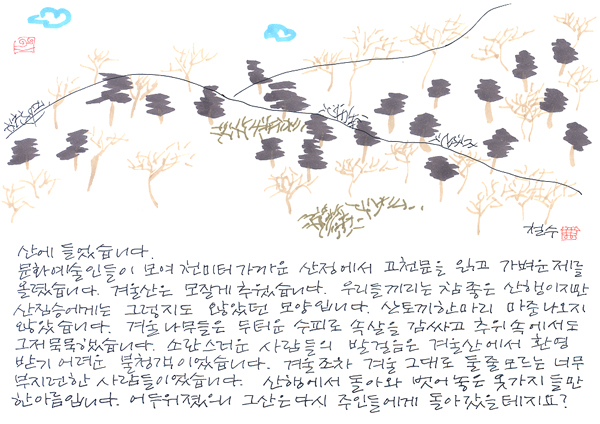 철수
산에 들었습니다.
문화예술인들이 모여 천미터 가까운 산정에서 고천문을 읽고 가벼운 제를
올렸습니다. 겨울산은 모질게 추웠습니다. 우리들끼리는 참 좋은 산행이지만
산짐승에게는 그렇지도 않았던 모양입니다. 산토끼 한마리 마중 나오지
않았습니다. 겨울나무들은 두터운 수피로 속살을 감싸고 추위 속에서도
그저 묵묵했습니다. 소란스러운 사람들의 발걸음은 겨울산에서 환영
받기 어려운 불청객이었습니다. 겨울조차 겨울 그대로 둘줄 모르는 너무
부지런한 사람들이었습니다. 산행에서 돌아와 벗어 놓은 옷가지들만
한아름입니다. 어두워졌으니 그 산은 다시 주인들에게 돌아갔을테지요?